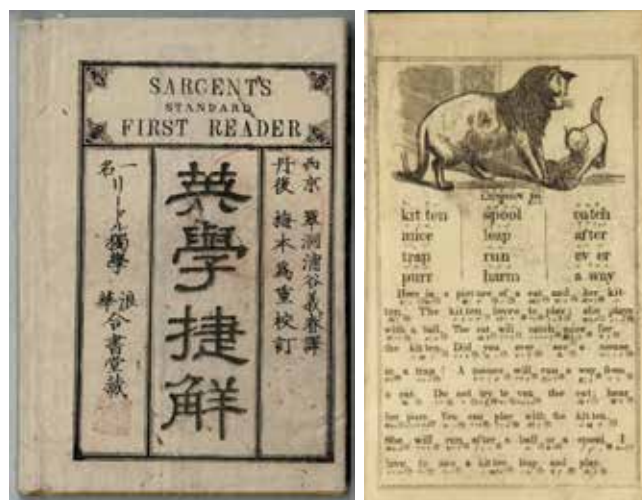 SARGENT'S
STANDARD
FIRST READER
西京 翠洞浦谷義春譯
丹後 梅本為重校訂
英學捷解
一名リードル獨學
浪華 合書堂藏
Lesson
kit ten spool catch
mice leap after
trap run ev er
purr harm a way
Here is a picture of a cat and her kit-
ten. The kit ten loves to play; she plays
with a ball. The cat will catch mice for
the kit ten. Did you ever see a mouse
in a trap? A mouse will run a way from
a cat. Do not try to vex the cat; hear
her purr. You can play with the kit ten.
She will run after a ball or a spool. I
love to see a kit ten leap and play.